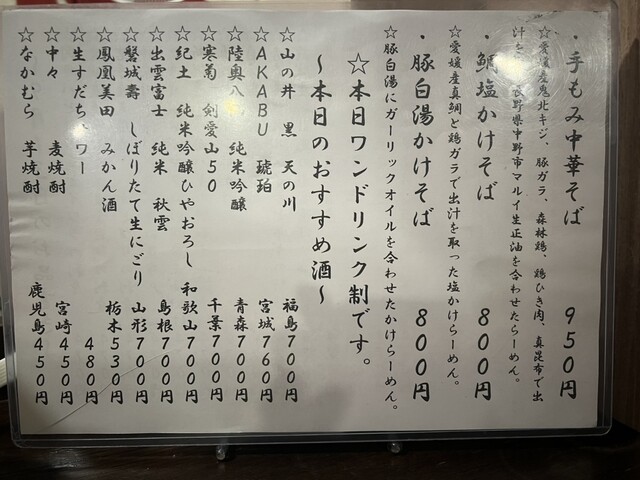 ・手もみ中華そば 950円
☆愛媛産鬼北キジ、豚ガラ、森林鶏、鶏ひき肉、真昆布で出
汁を 長野県中野市マルイ生正油を合わせたらーめん。
・鯛塩かけそば 800円
☆愛媛産真鯛と鶏ガラで出汁を取った塩かけらーめん。
・豚白湯かけそば 800円
☆豚白湯にガーリックオイルを合わせたかけらーめん。
☆本日ワンドリンク制です。
～本日のおすすめ酒～
☆山の井 黒 天の川 福島700円
☆AKABU 琥珀 宮城760円
☆陸奥八 純米吟醸 青森700円
☆寒菊 剣愛山50 千葉700円
☆紀土 純米吟醸ひやおろし 和歌山700円
☆出雲富士 純米 秋雲 島根700円
☆磐城壽 しぼりたて生にごり 山形700円
☆鳳凰美田 みかん酒 栃木530円
☆生すだち ワー 480円
☆中々 麦焼酎 宮崎450円
☆なかむら 芋焼酎 鹿児島450円